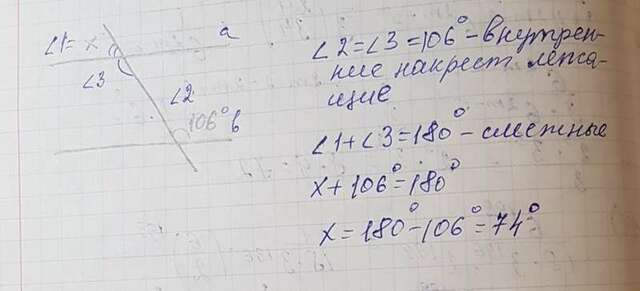 ∠1 = x
a
∠3
∠2
106°
b
∠2 = ∠3 = 106° - внутрен-
ние накрест лежа-
щие
∠1 + ∠3 = 180° - смежные
x + 106° = 180°
x = 180° - 106° = 74°